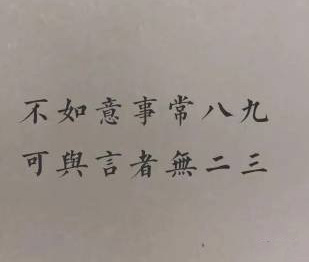 不如意事常八九
可與言者無二三